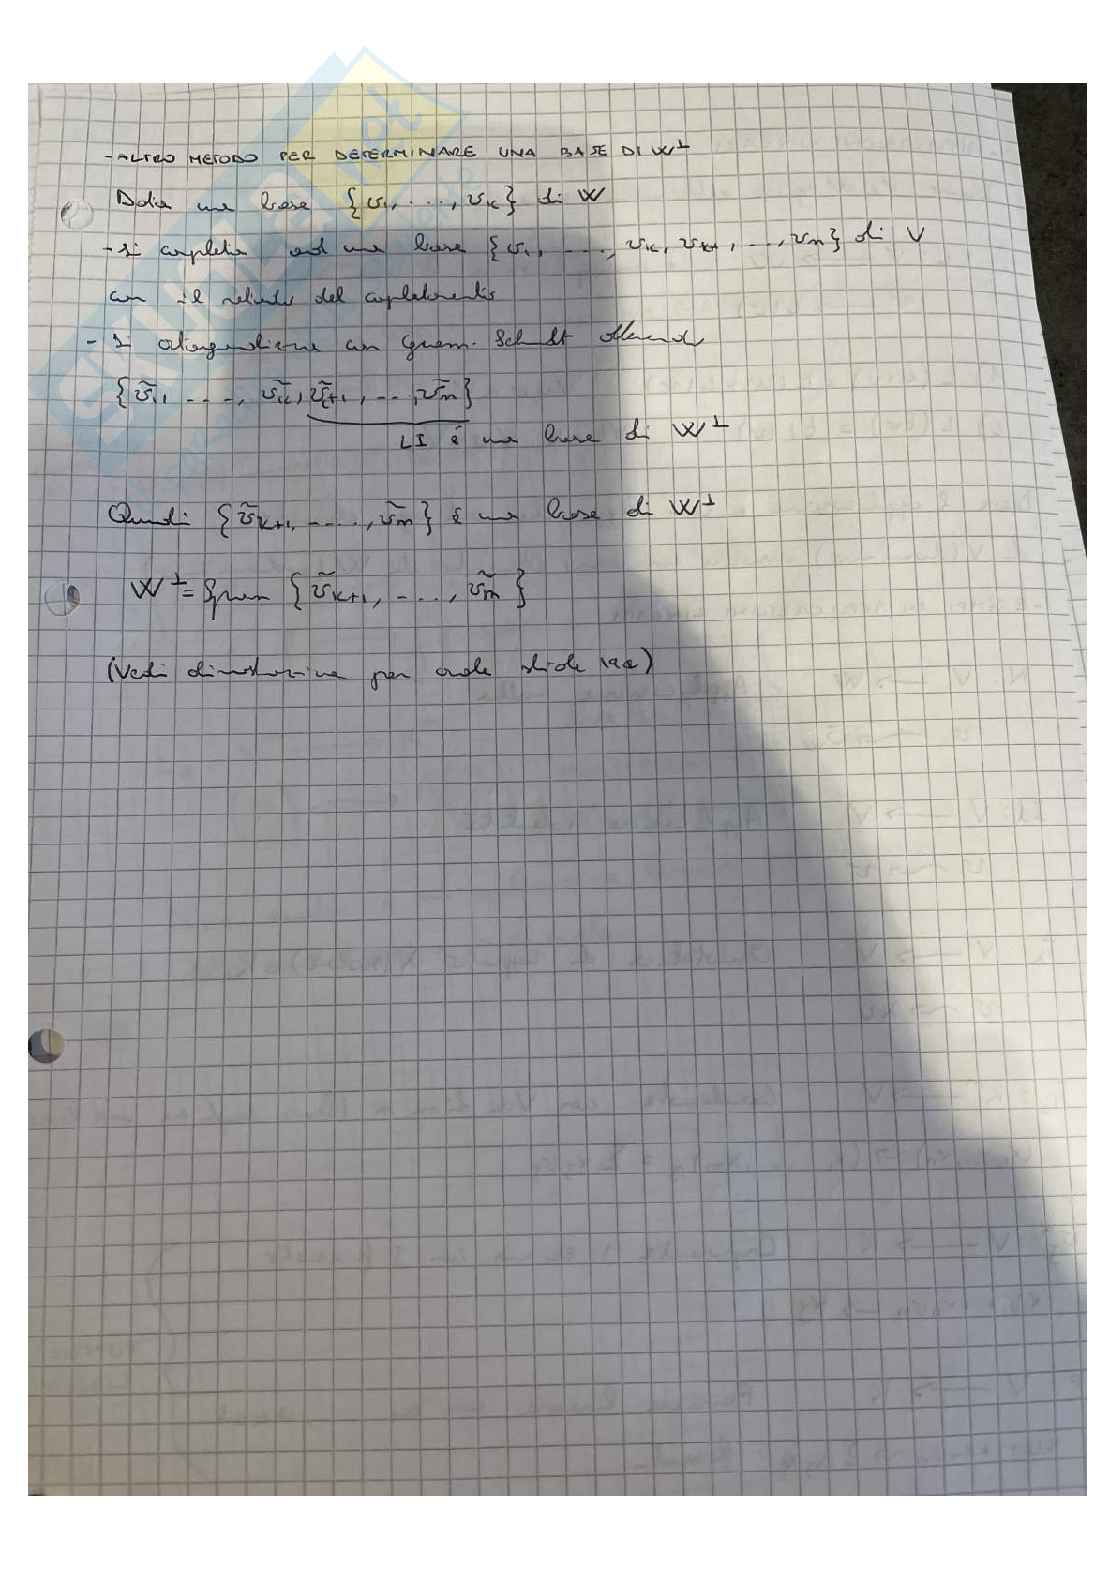 - ALTRO METODO PER DETERMINARE UNA BASE DI W⊥
Data una base {v1, ..., vk} di W
- si completa ad una base {v1, ..., vk, vk+1, ..., vn} di V
con il metodo del completamento
- si ortogonalizza con Gram-Schmidt ottenendo
{ṽ1, ..., ṽk, ṽk+1, ..., ṽn}
LI è una base di W⊥
Quindi {ṽk+1, ..., ṽn} è una base di W⊥
W⊥ = Span {ṽk+1, ..., ṽn}
(Vedi dimostrazione per orale slide